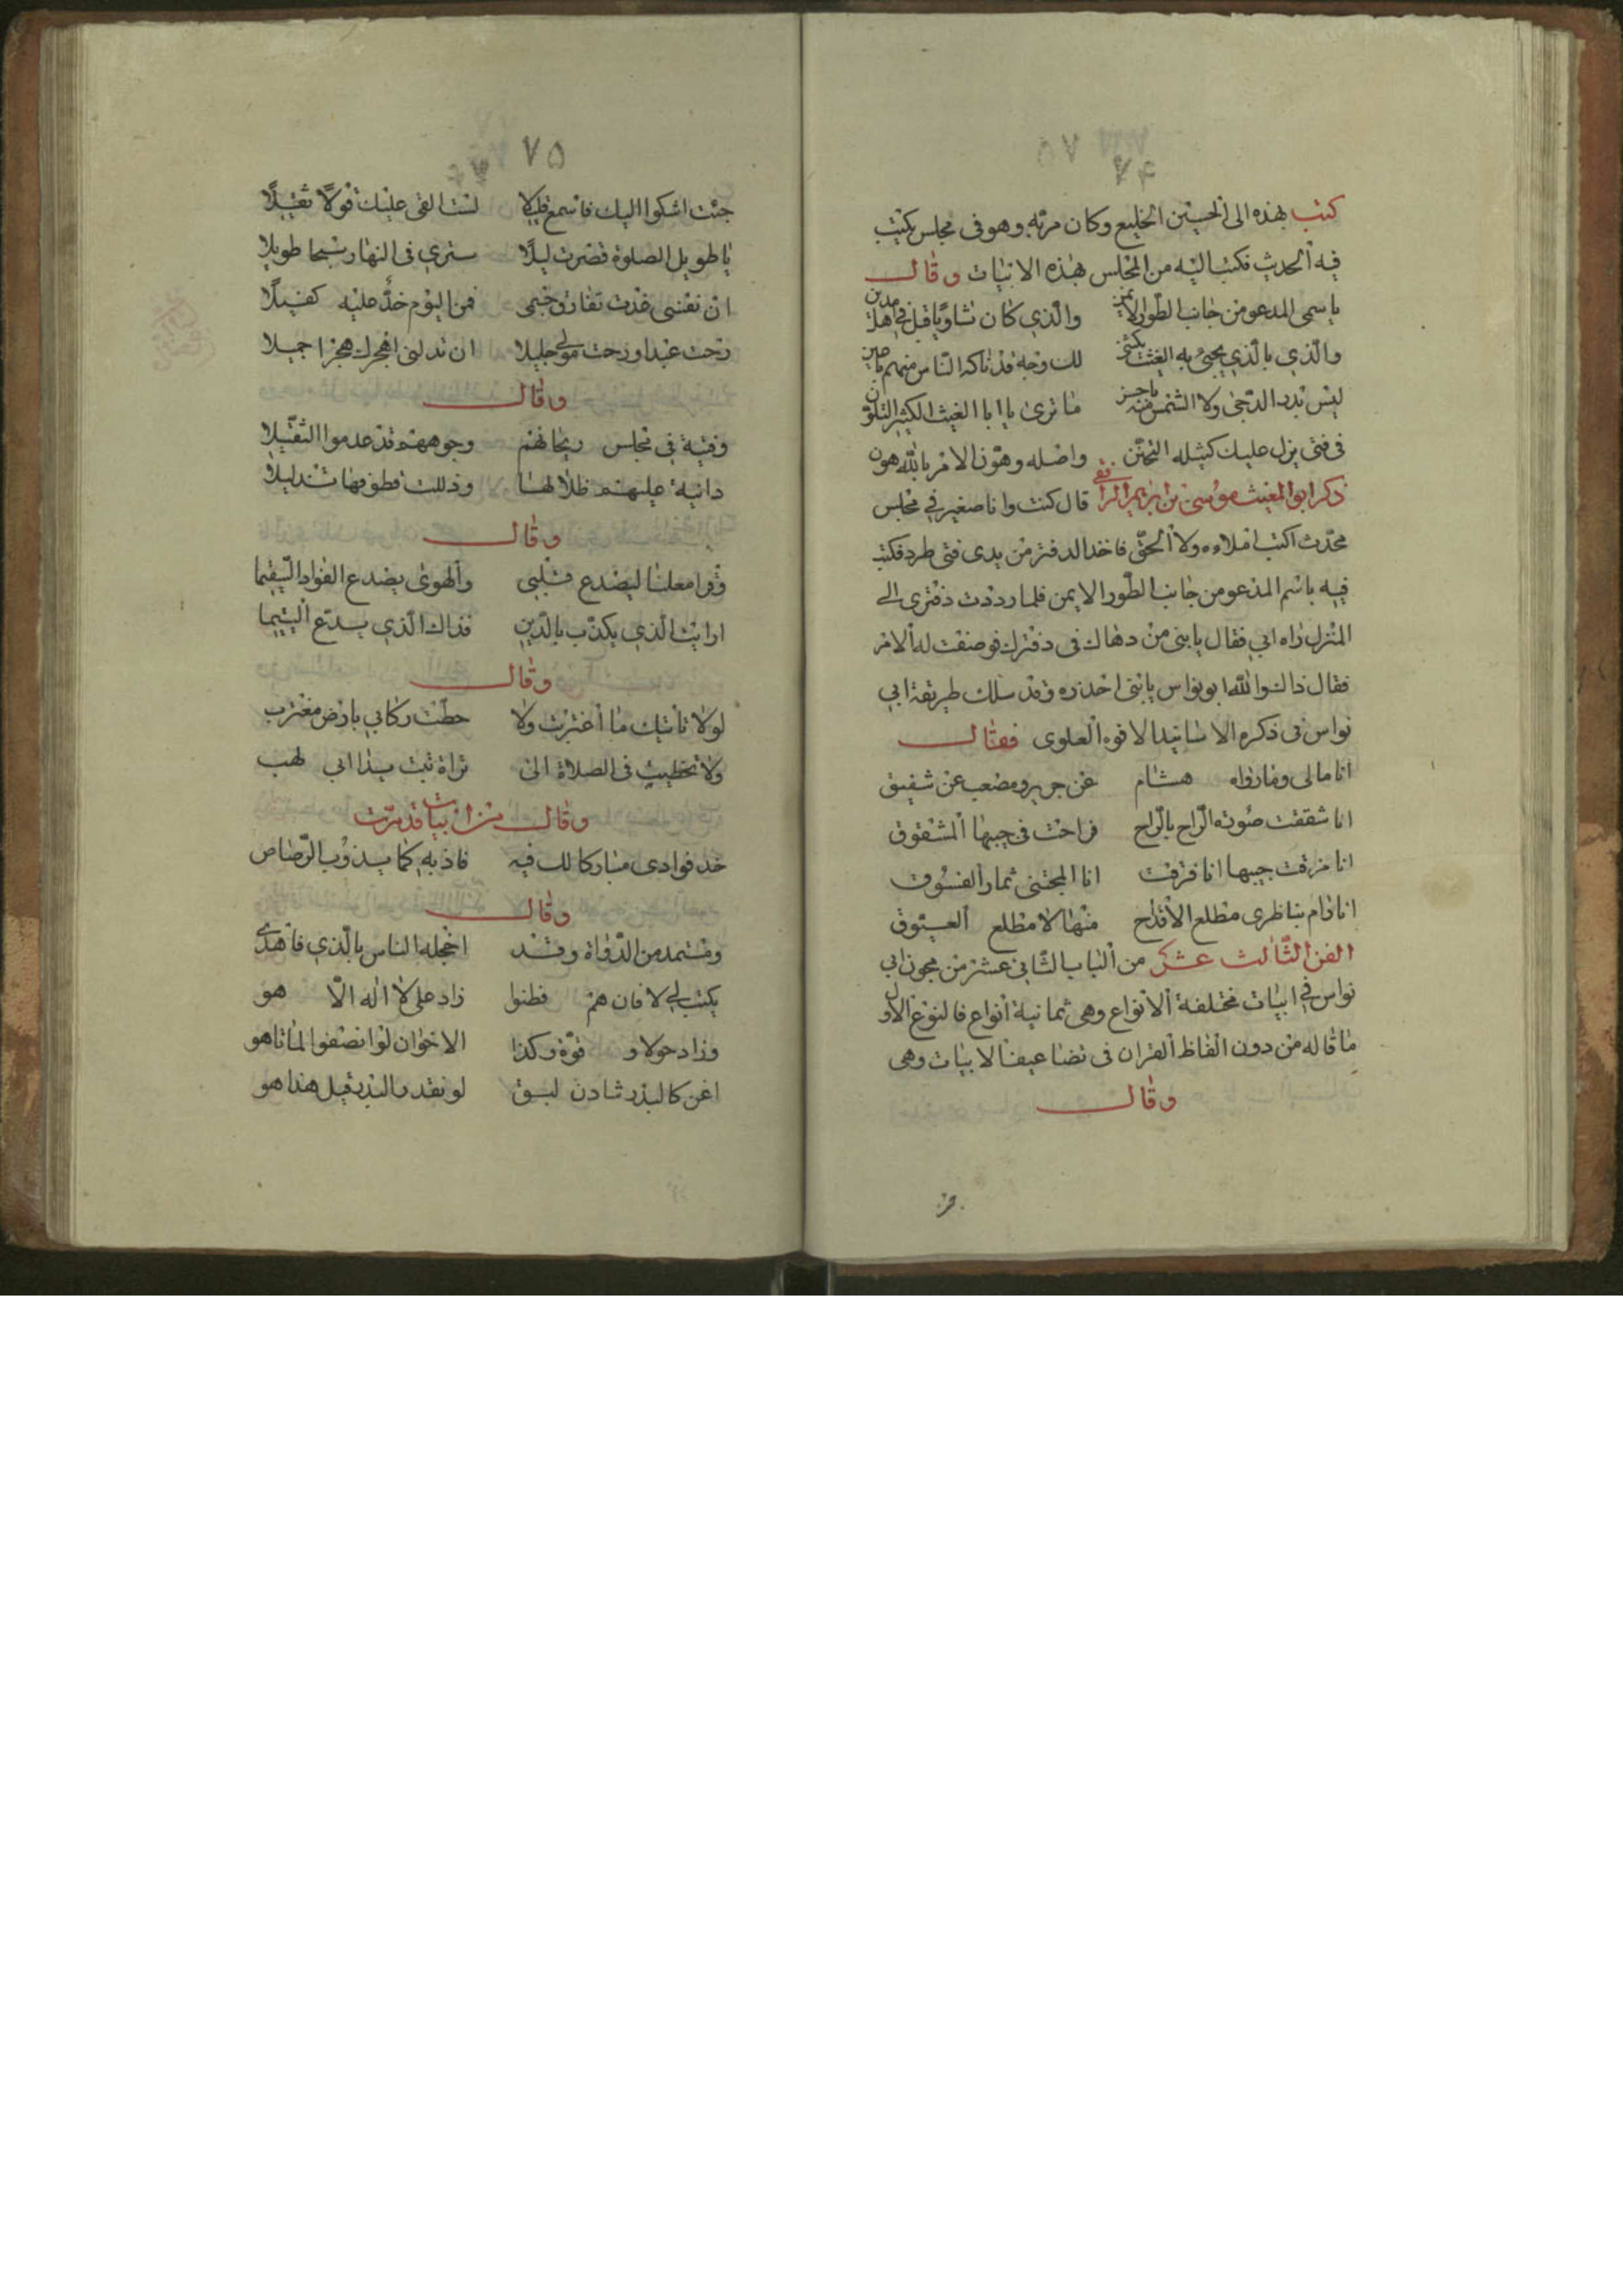 ٧۴
كتب بهذه الى الحسين الخليع وكان مر به وهو فى مجلس يكتب
فيه الحديث فكتب اليه من المجلس بهذه الابيات وقال
يا سمى المدعو من جانب الطور الايمن والذي كان ثاويا قبل في اهل مدين
والذي بالذي يجيئ به الغيث يكتنى لك وجه قد تاكه الناس منهم
ليس بدر الدجى ولا الشمس منه باحسن ما ترى يا ابا الغيث الكثير التلون
فى فتى يزل عليك كثيله التحنن واصله وهون الامر بالله هون
ذكر ابو المغيث موسى بن ابرهيم الرافقى قال كنت وانا صغير في مجلس
محدث اكتب املاءه ولا الحق فاخذ الدفتر من يدى فتى طرد فكتب
فيه باسم المدعو من جانب الطور الايمن فلما رددت دفترى الى
المنزل راه ابي فقال يا بنى من دهاك فى دفترك فوصفت له الامر
فقال ذاك والله ابو نواس يا بنى احذره وقد سلك طريقة ابي
نواس فى ذكره الاسانيد الافوه العلوى فقال
انا مالى وما رواه هشام عن جرير ومصعب عن شفيق
انا شققت صوته الراح بالراح فراحت فى جيبها المشقوق
انا مزقت جيبها انا فزقت انا المجتنى ثمار الفسوق
انا رام بناظرى مطلع الاقداح منها لا مطلع العيوق
الفن الثالث عشر من الباب الثانى عشر من مجون ابي
نواس في ابيات مختلفة الانواع وهى ثمانية انواع فالنوع الاول
ما قاله من دون الفاظ القران فى تضاعيف الابيات وهى
وقال
٧٥
جئت اشكوا اليك فاسمع قليلا لست القى عليك قولا ثقيلا
يا طويل الصلوة قصرت ليلا سترى فى النهار سبحا طويلا
ان نفسى غدت تفارق جسمى فمن اليوم خذ عليه كفيلا
رحت عبدا ورحت مولى جليلا ان تدلنى اهجرك هجرا جميلا
وقال
وفتية فى مجلس ريحانهم وجوههم قد عدموا التثقيلا
دانية عليهم ظلالها وذللت قطوفها تذليلا
وقال
وقرا معلنا ليصدع قلبى والهوى يصدع الفواد السقيما
ارايت الذي يكذب بالدين فذاك الذي يدع اليتيما
وقال
لولا تانيك ما اغتربت ولا حطت ركابي بارض مغترب
ولا تخطيت فى الصلاة الى تراة تبت يدا ابي لهب
وقال من ابيات قد مرت
خذ فوادى مباركا لك فيه فاذبه كما يذوب الرصاص
وقال
ومستمد من الدواة وقد اخجله الناس بالذي فاهدى
يكتب لي لا فان هم فطنوا زاد على لا اله الا هو
وزاد حولا و قوة وكذا الاخوان لو انصفوا لما تاهو
اغن كالبدر شادن لبق لو نقد البدر قيل هذا هو